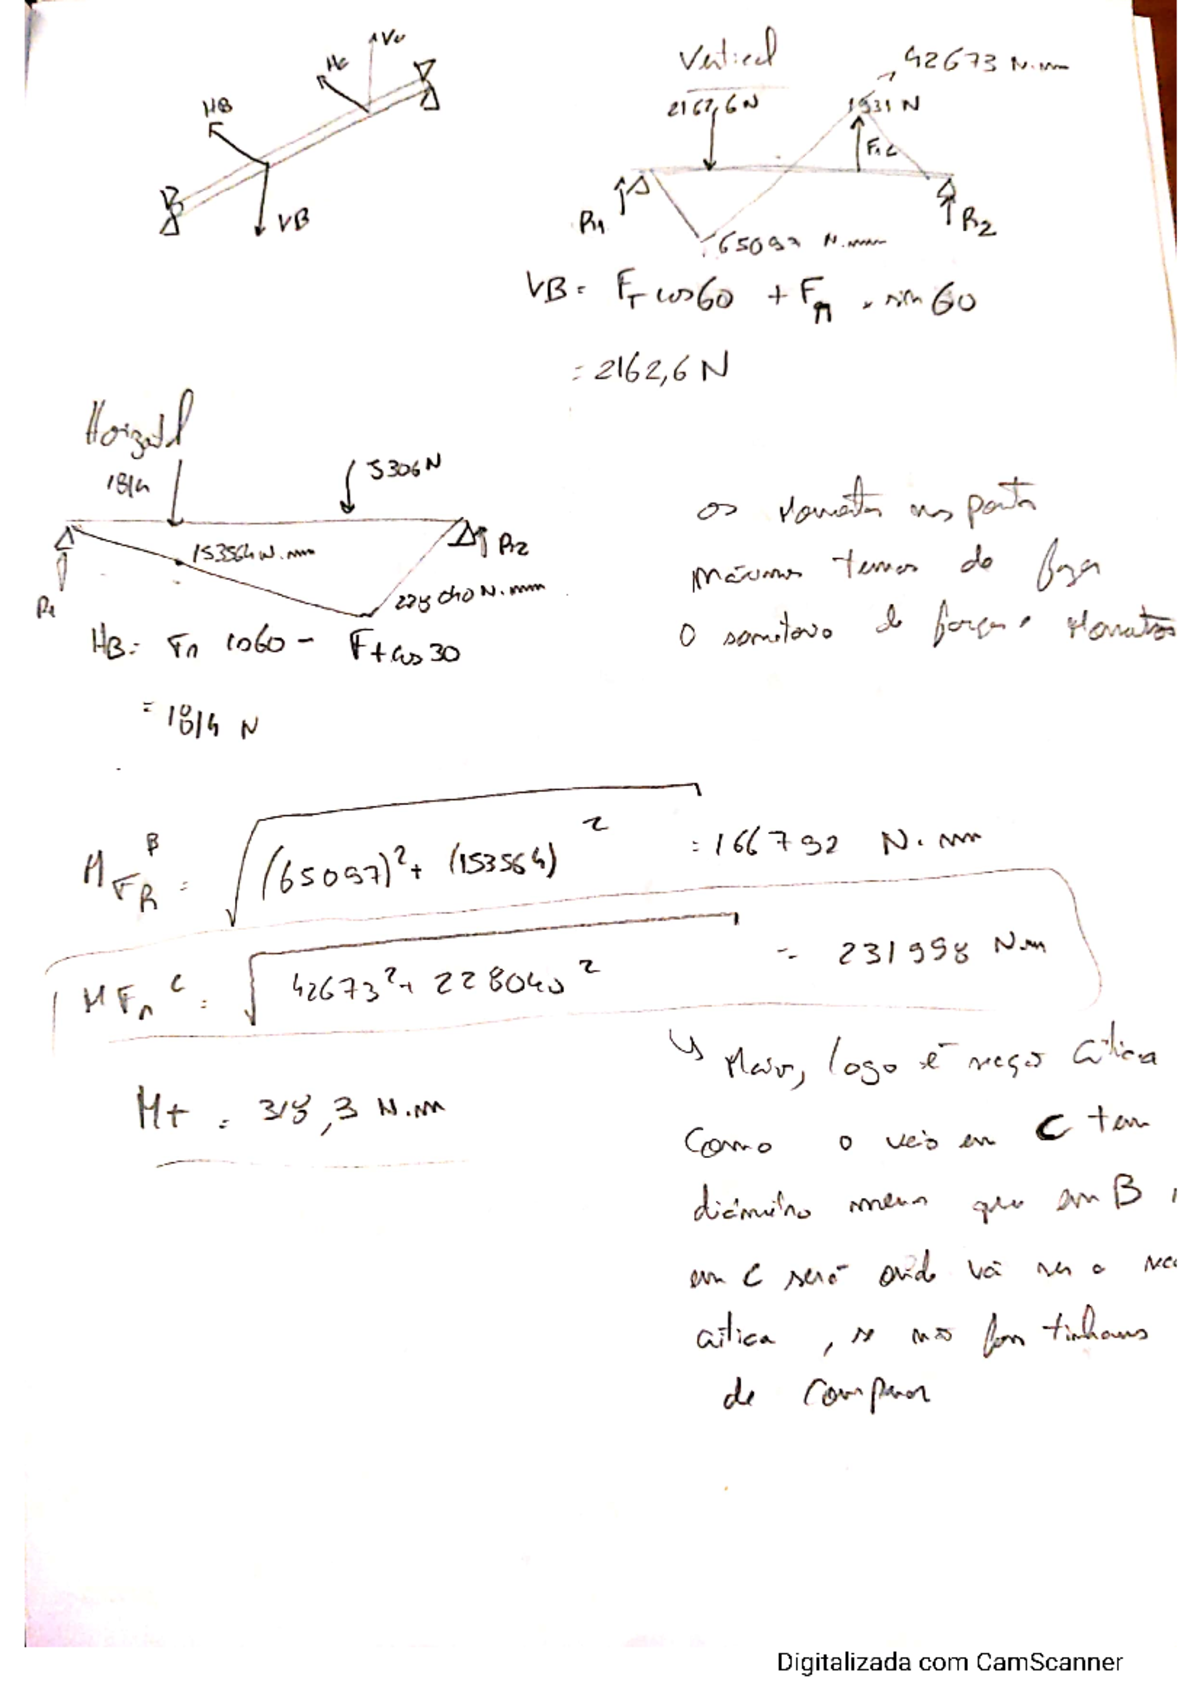 Vc
Hc
HB
VB
Vertical
42673 N.mm
2162,6N
1931 N
Frc
R1
R2
65097 N.mm
VB = FT cos60 + Fr . sin 60
= 2162,6 N
Horizontal
1814
5306 N
153564 N.mm
R2
R1
228040 N.mm
HB = Fr cos60 - Ft cos 30
= 1814 N
os Momentos nos pontos
máximos temos de fazer
o somatório de forças e Momentos
M FR B = √(65097)² + (153564)² = 166792 N.mm
M Fr C = √42673² + 228040² = 231998 N.m
↳ Maior, logo é secção crítica
Mt = 318,3 N.m
Como o veio em C tem
diâmetro menor que em B,
em C será onde vai ser a
crítica, se não for tinhamos
de comparar
Digitalizada com CamScanner